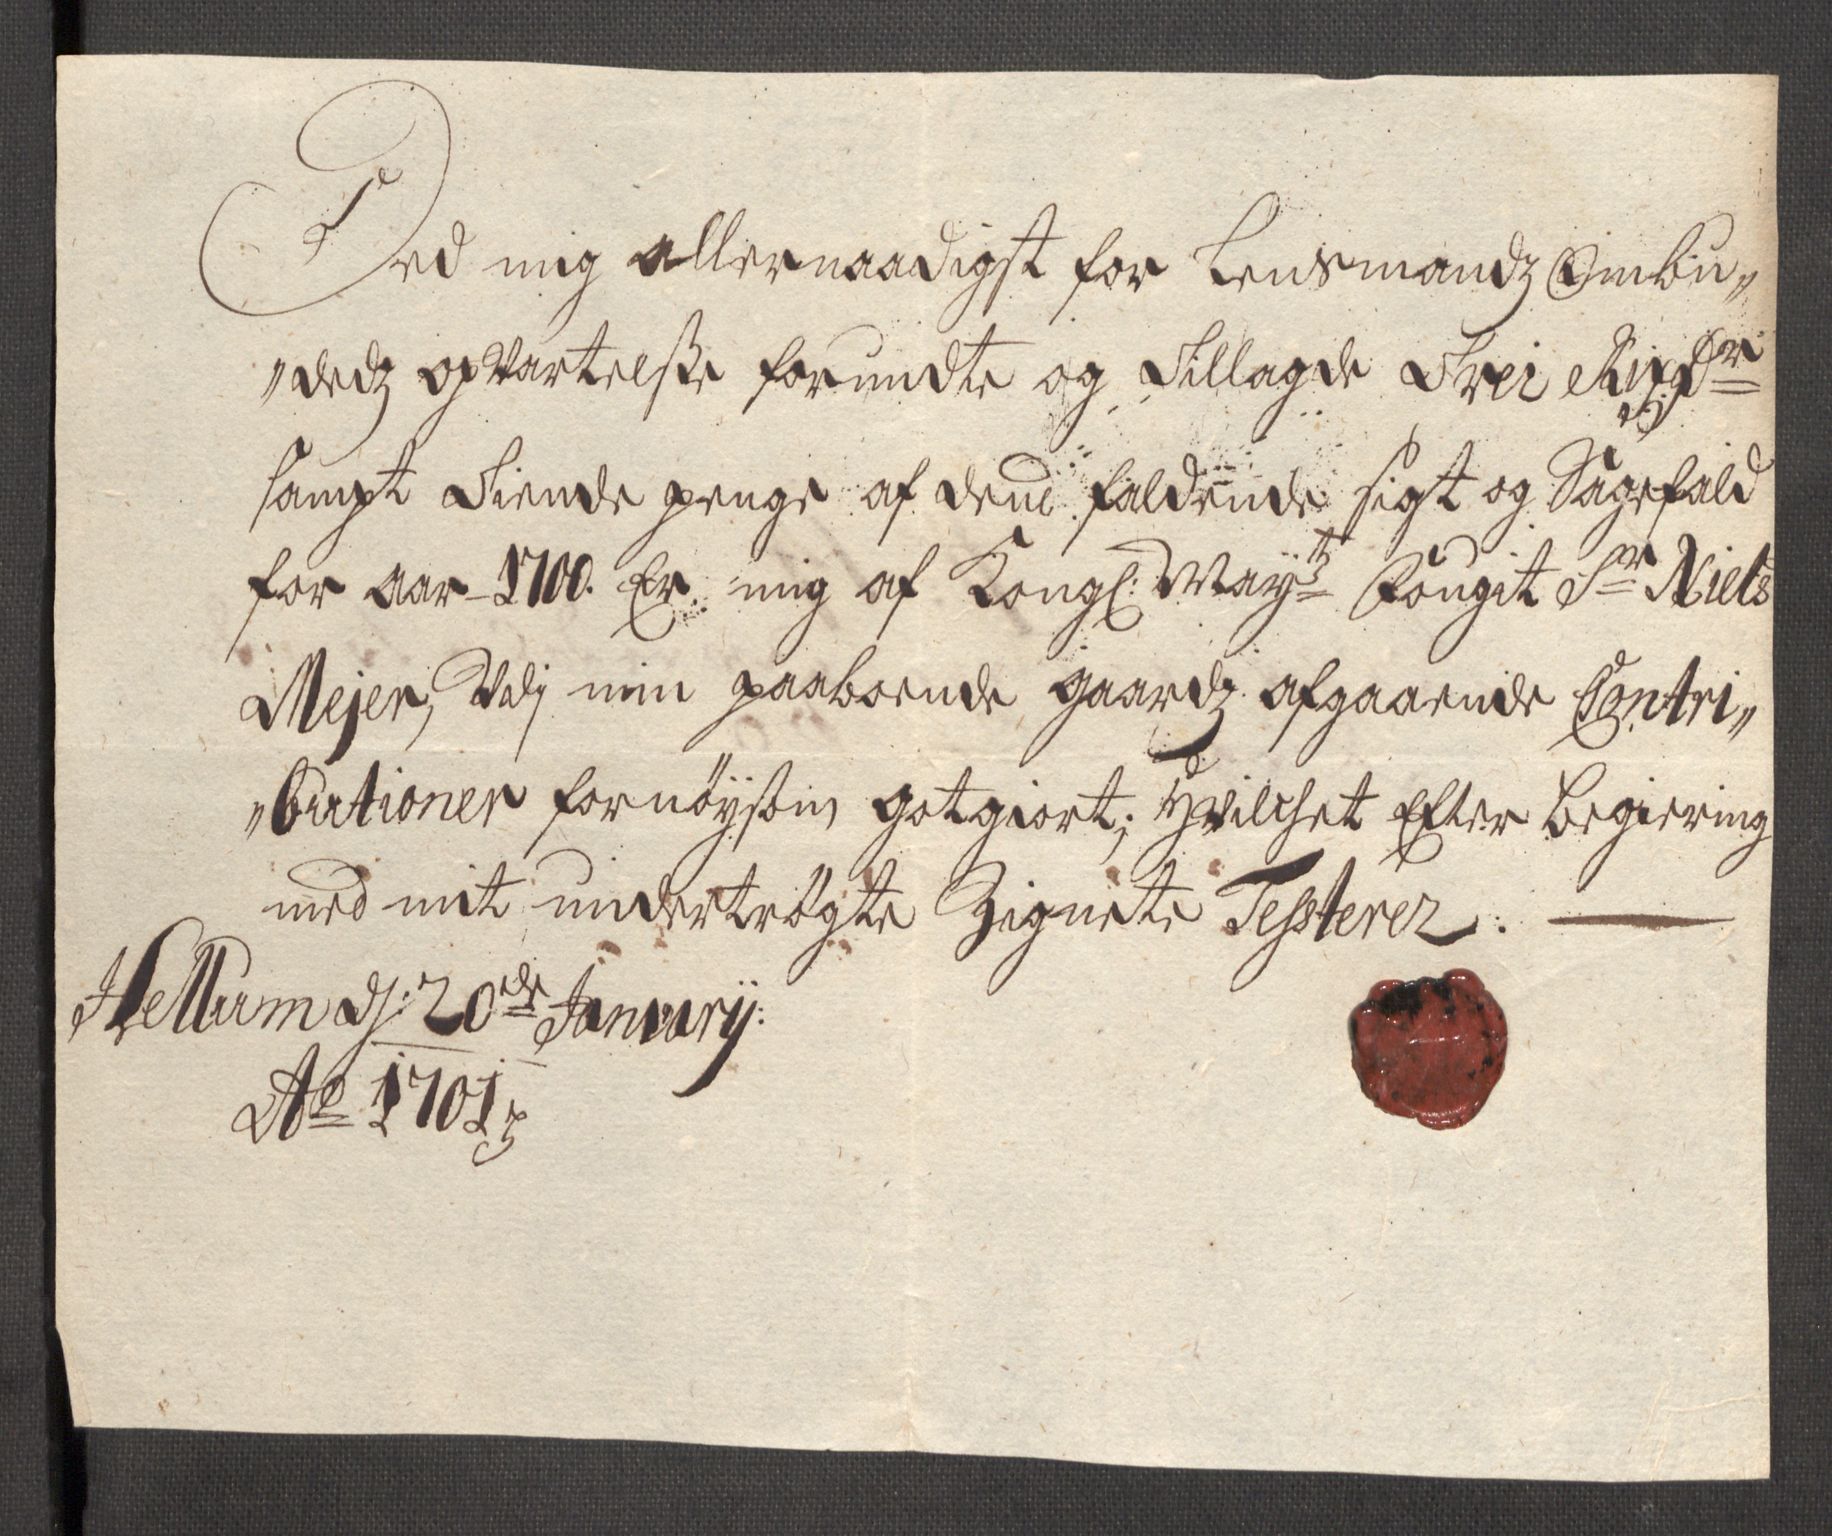 Ded mig allernaadigst for Lensmandz Ombu„
„dedz opVartelsse forundte og Tillagde Trei Rixdr
sampt Tiende penge af dend faldende sigt og Sagefald
for aar 1700. Er mig af Kongl: Maytz Fougit Sr Niels
Mejer, Udj min paaboende gaardz afgaaende Contri„
„butioner fornöyson gotgiort; Hvilchet Efter Begiering
med mit undertrögte Zignete Testerer.
Hellum dj: 20de January:
Ao 1701